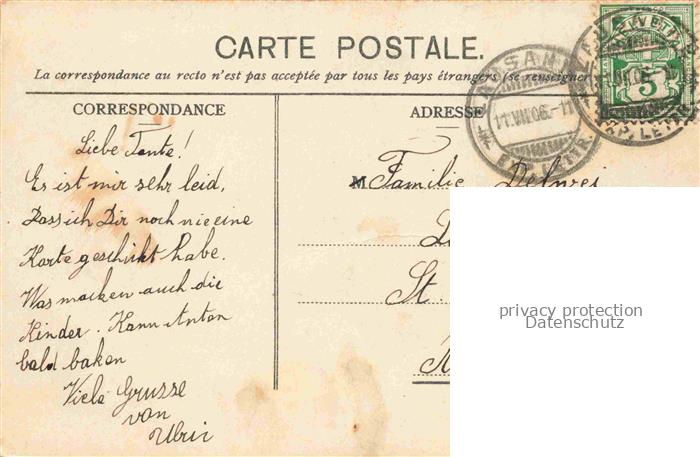 CARTE POSTALE.
La correspondance au recto n'est pas acceptée par tous les pays étrangers (se renseigner
CORRESPONDANCE
ADRESSE
LAUSANNE
11.VII.06.-11
EXP. LETTR.
HELVETIA
5
EXP. LETTR.
Liebe Tante!
Es ist mir sehr leid,
Dass ich Dir noch nie eine
Karte geschikt habe.
Was macken auch die
Kinder. Kann Anton
bald baken
Viele Grusse
von
M Familie
St.
privacy protection
Datenschutz